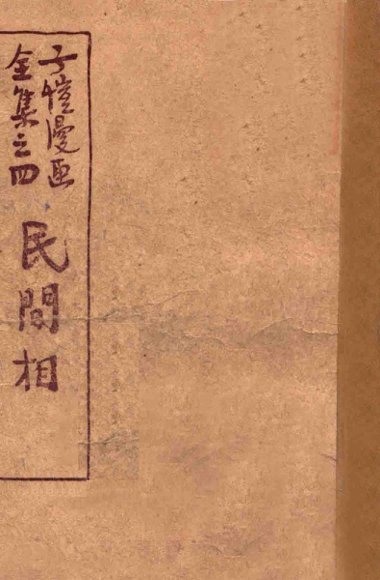 子愷漫画
全集之四
民間相